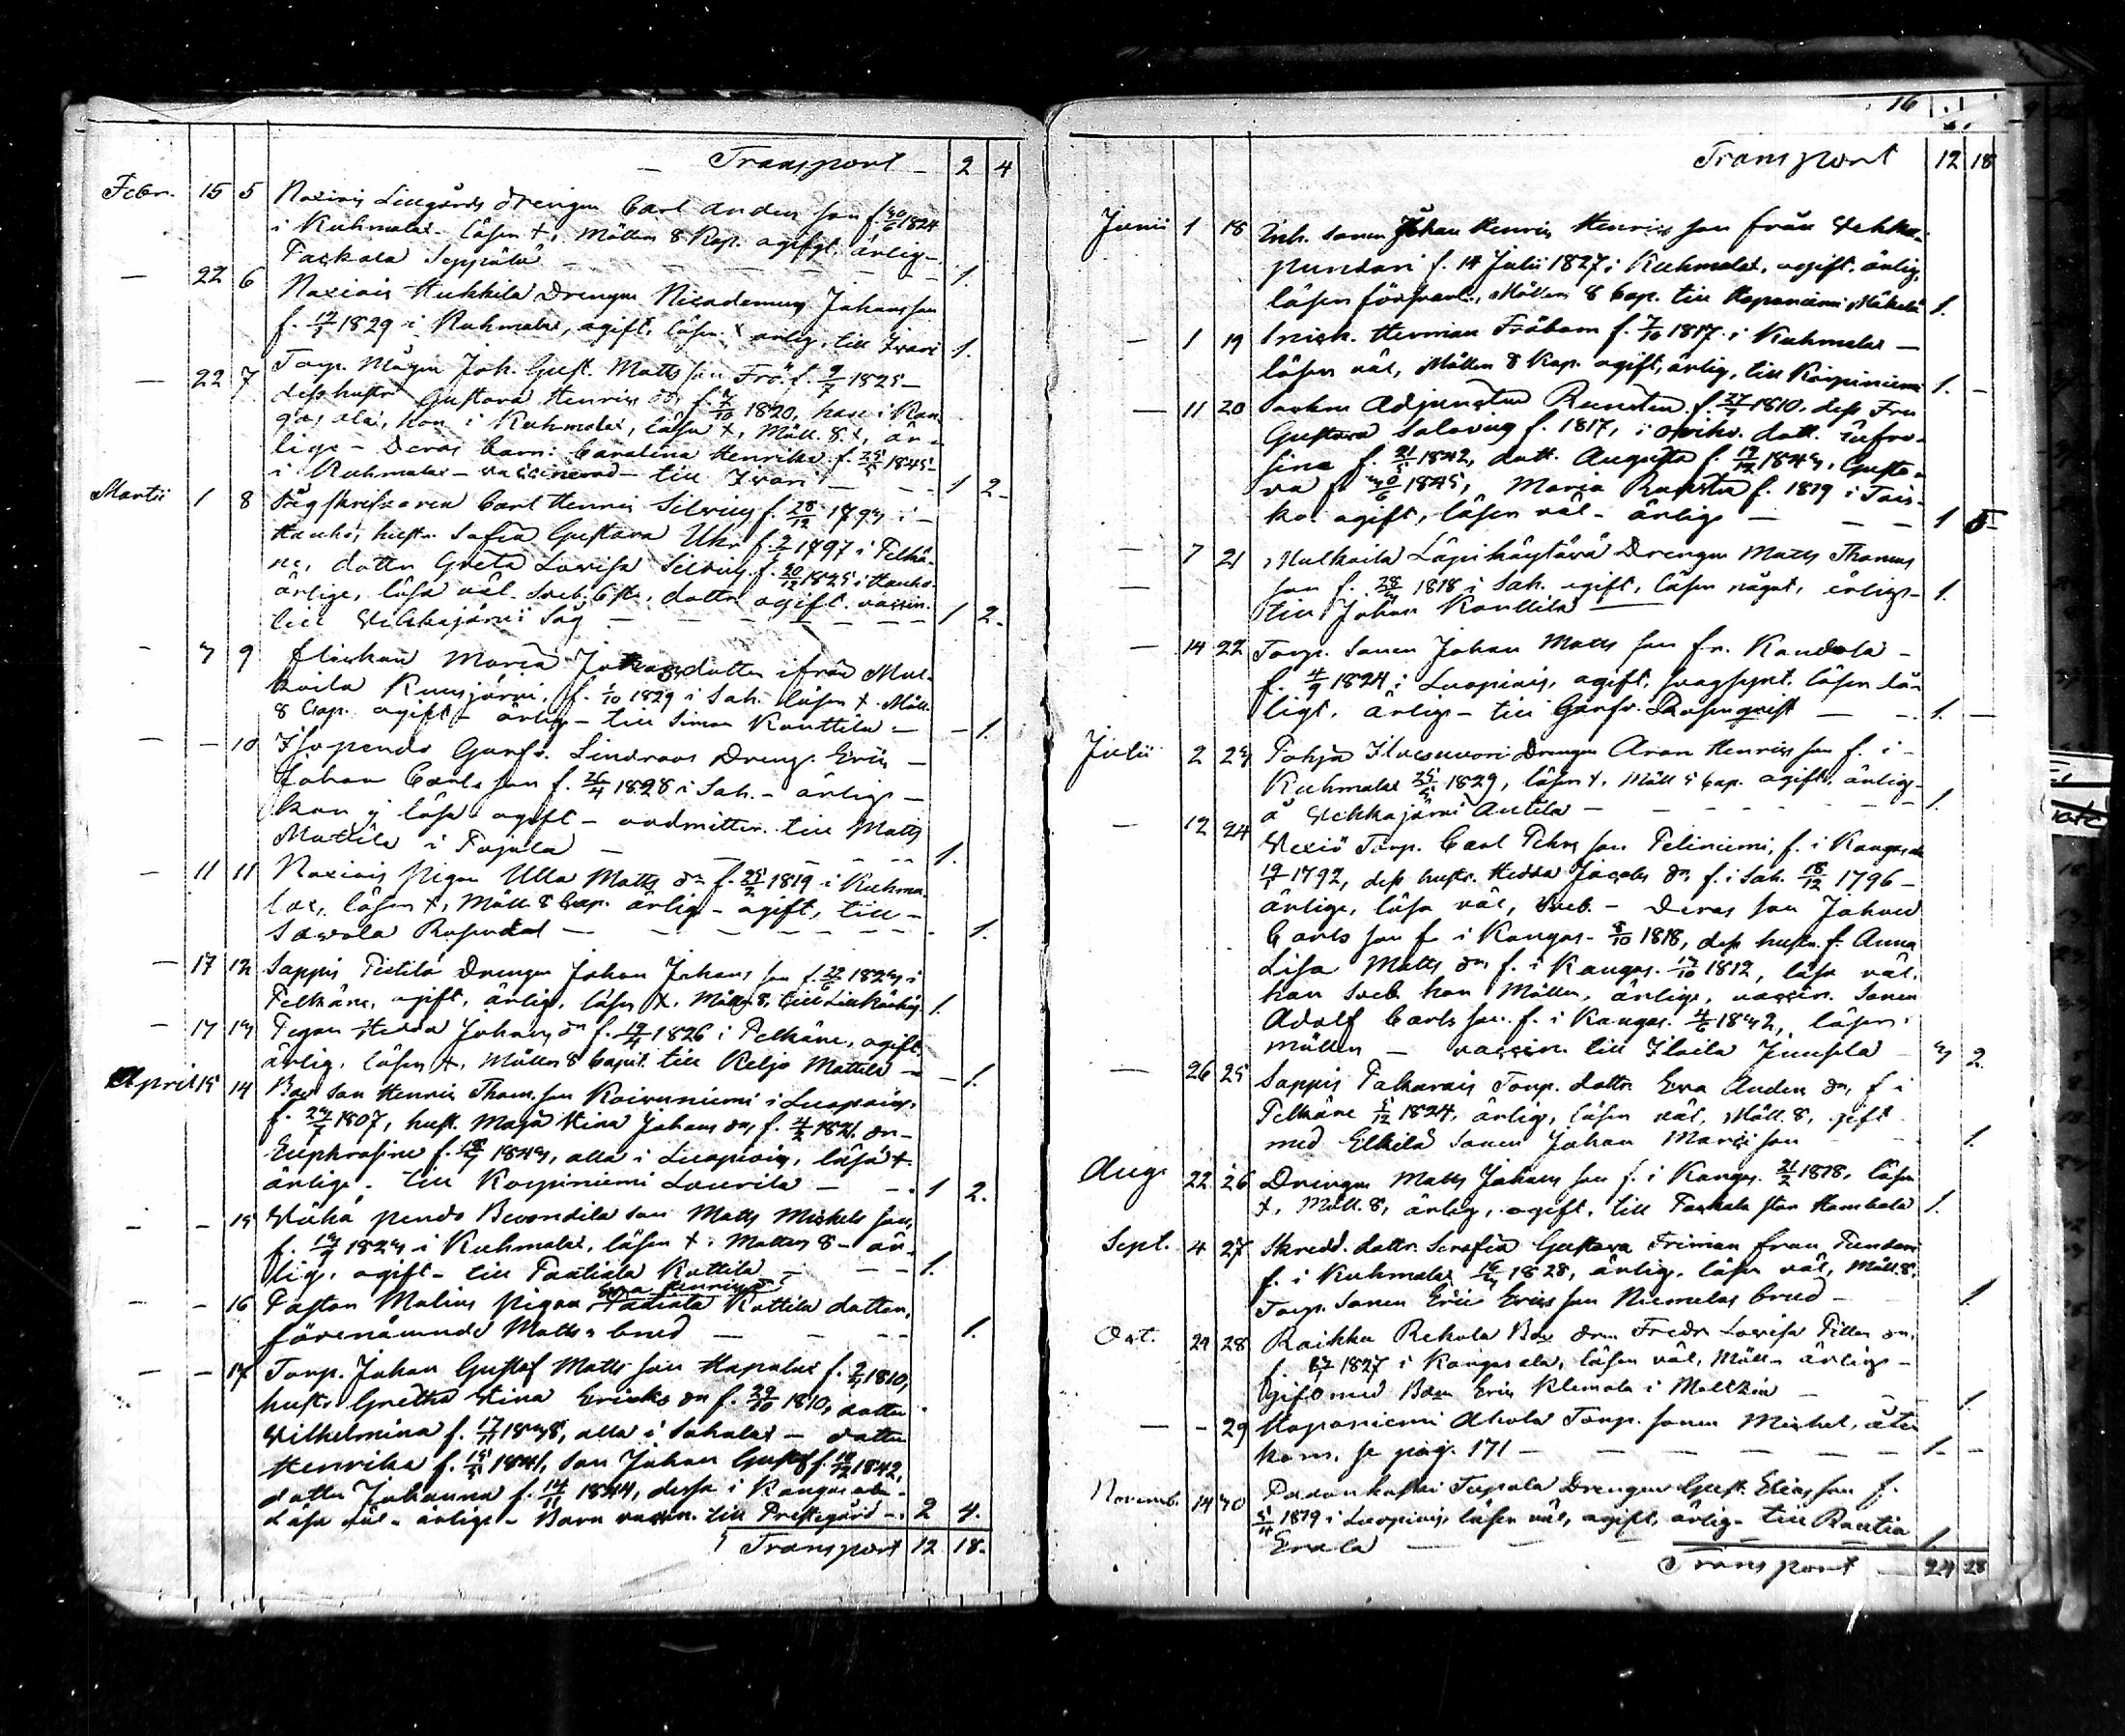 Transport 2 4
Febr. 15 5 Naxiais Liugårds Drengen Carl Anders son f. 30/6 1824
i Kuhmalax läsen +, Mölln 8 Kap. ogift, ärlig -
Paskala Seppälä 1.
22 6 Naxiais Hukkila Drengen Nicodemus Johansson
f. 1829 i Kuhmalax, ogift, läsen + ärlig, till Ivari 1.
22 7 Torp. Mågen Joh. Gust. Matts son Frö. f. 1825
dess hustru Gustava Henrics dr f. 7/10 1820, han i Kan
gasala, hon i Kuhmalax, läsa +, Möll. 8 +, är-
lige - Deras barn: Carolina Henrika f. 1845
i Kuhmalax - vaccinerad - till Ivari 1 2
Martii 1 8 Sågskrifvaren Carl Henric Silvius f. 28/12 1793 i
Hauho, hustr. Sofia Gustava Uhr f. 1797 i Pelkä-
ne, dotter Greta Lovisa Silvius f. 20/12 1825 i Hauho
ärlige, läsa väl. Sveb. dottr ogift. vaccin.
till Vehkajärvi Såg 1 2.
3 9 flickan Maria Johansdotter ifrån Mul-
koila Kuusjärvi, f. 1/10 1829 i Sah. läsen + Möll.
8 Cap. ogift - ärlig - till Simon Kouttila 1.
10 Isopendo Garfv. Lindroos Dreng. Eric
Johan Carls son f. 26/4 1828 i Sah. - ärlig -
kan ej läsa ogift - admitter. till Matts
Mattila i Pajula 1.
11 11 Naxiais pigan Ulla Matts dr f. 25/2 1819 i Kuhma-
lax, läsen +, Möll. 8 Cap. ärlig - ogift, till -
Sawola Rosendal 1.
17 12 Sappis Pietilä Drengen Johan Johans son f. 22/6 1823 i
Pelkäne, ogift, ärlig, läsen +, Mölln 8. till 1.
17 13 Pigan Hedda Johans dr f. 19/4 1826 i Pelkäne, ogift,
ärlig, läsen +, Mölln 8 Caput. till Keljo Mattila 1.
April 15 14 Bd. son Henric Thom. son Koivuniemi i Luopiois,
f. 1807, hust. Maja Stina Johans dr f. 4/2 1821. dr
Euphrosine f. 1843, alla i Luopiois, läsa +
ärlige - till Korpiniemi Laurila 1 2.
15 Wähä pendo Bevondila son Matts Michels son,
f. 1823 i Kuhmalax, läsen +, Mölln 8 - är-
lig, ogift - till Pautiala Kottila 1.
Eva Henrica
16 Pastor Malius pigan Kottila dotter,
förenämnde Matts's brud 1.
17 Torp. Johan Gustaf Matts son Hapalax f. 1810,
hustr. Gretha Stina Ericks dr f. 29/10 1810, dotter
Wilhelmina f. 17/11 1838, alla i Sahalax - dotter
Henrika f. 1841, son Johan Gustaf f. 1842,
dotter Johanna f. 14/11 1844, dessa i Kangasala -
läsa väl - ärlige - Barn vaccin. till Prestegård 2 4.
Transport 12 18.
16
Transport 12 18
Junii 1 18 Inh. sonen Johan Henric Henrics son från Vehka-
pundari f. 14 Julii 1827 i Kuhmalax, ogift, ärlig,
läsen försvarl., Mölln 8 Cap. till Haponiemi Mäkelä 1.
1 19 Inish. Herman Fröbom f. 7/10 1817 i Kuhmalax
läsen väl, Mölln 8 Kap. ogift, ärlig, till Korpiniemi 1.
11 20 Sockne Adjuncten Runsten f. 1810, dess Fru
Gustava Salovius f. 1817, i dott. Eufro-
sine f. 1842, dott. Augusta f. 1843, Gusta-
va f. 30/6 1845, Maria Runsten f. 1819 i Tais-
ko. ogift, läsen väl - ärlige 1 5
7 21 Mulkoila Läpihäytävä Drengen Matts Thomas
son f. 1818 i Sah. ogift, läsen något, ärlig -
till Johan Kouttila 1.
14 22 Torp. Sonen Johan Matts son fr. Kandola -
f. 4/9 1824 i Luopiois, ogift, svagsynt. läsen då-
ligt, ärlig - till Garfv. Rosenqvist 1.
Julii 2 23 Pohja Drengen Aron Henrics son f. i
Kuhmalax 1829, läsen +, Möll 5 Cap. ogift, ärlig -
å Vehkajärvi Antila 1.
12 24 Wexiö Torp. Carl Pehrs son Peliniemi, f. i Kangasala
1792, dess hustr. Hedda Jacobs dr f. i Sah. 18/12 1796 -
ärlige, läsa väl, Sveb. - Deras son Johan
Carls son f. i Kangas. 8/10 1818, dess hustr. f. Anna
Lisa Matts dr f. i Kangas. 1812, läsa väl,
han Sveb. hon Mölln, ärlige, vaccin. Sonen
Adolf Carls son f. i Kangas. 1832, läsen
Mölln - vaccin. till Juusela 3 2.
26 25 Sappis Pakarais Torp. dottr Eva Anders dr f i
Pelkäne 5/12 1824, ärlig, läsen väl, Möll. 8, gift
med Elkilä sonen Johan son 1.
Aug. 22 26 Drengen Matts Johans son f. i Kangas. 21/2 1818, läsen
+, Möll. 8, ärlig, ogift, till Paskala 1.
Sept. 4 27 Skredd. dottr. Serafia Gustava Friman från Pundari
f. i Kuhmalax 1828, ärlig, läsen väl, Möll. 8.
Torp. Sonen Eric Erics son Niemelas brud 1.
Oct. 29 28 Raikku Rekola Bd. drn Fredr. Lovisa Pitter dr,
f. 1827 i Kangasala, läsen väl, Mölln ärlig -
gift med Bdn Eric Klemola i Moltzia 1
29 Haponiemi Ahola Torp. sonen Michel, åter
kom, se pag. 171 1.
Novemb. 14 30 Padankoski Tupala Drengen Gust. Elias son f.
5/4 1819 i Luopiois, läsen väl, ogift, ärlig - till Rautia
Erola 1
Transport 24 28